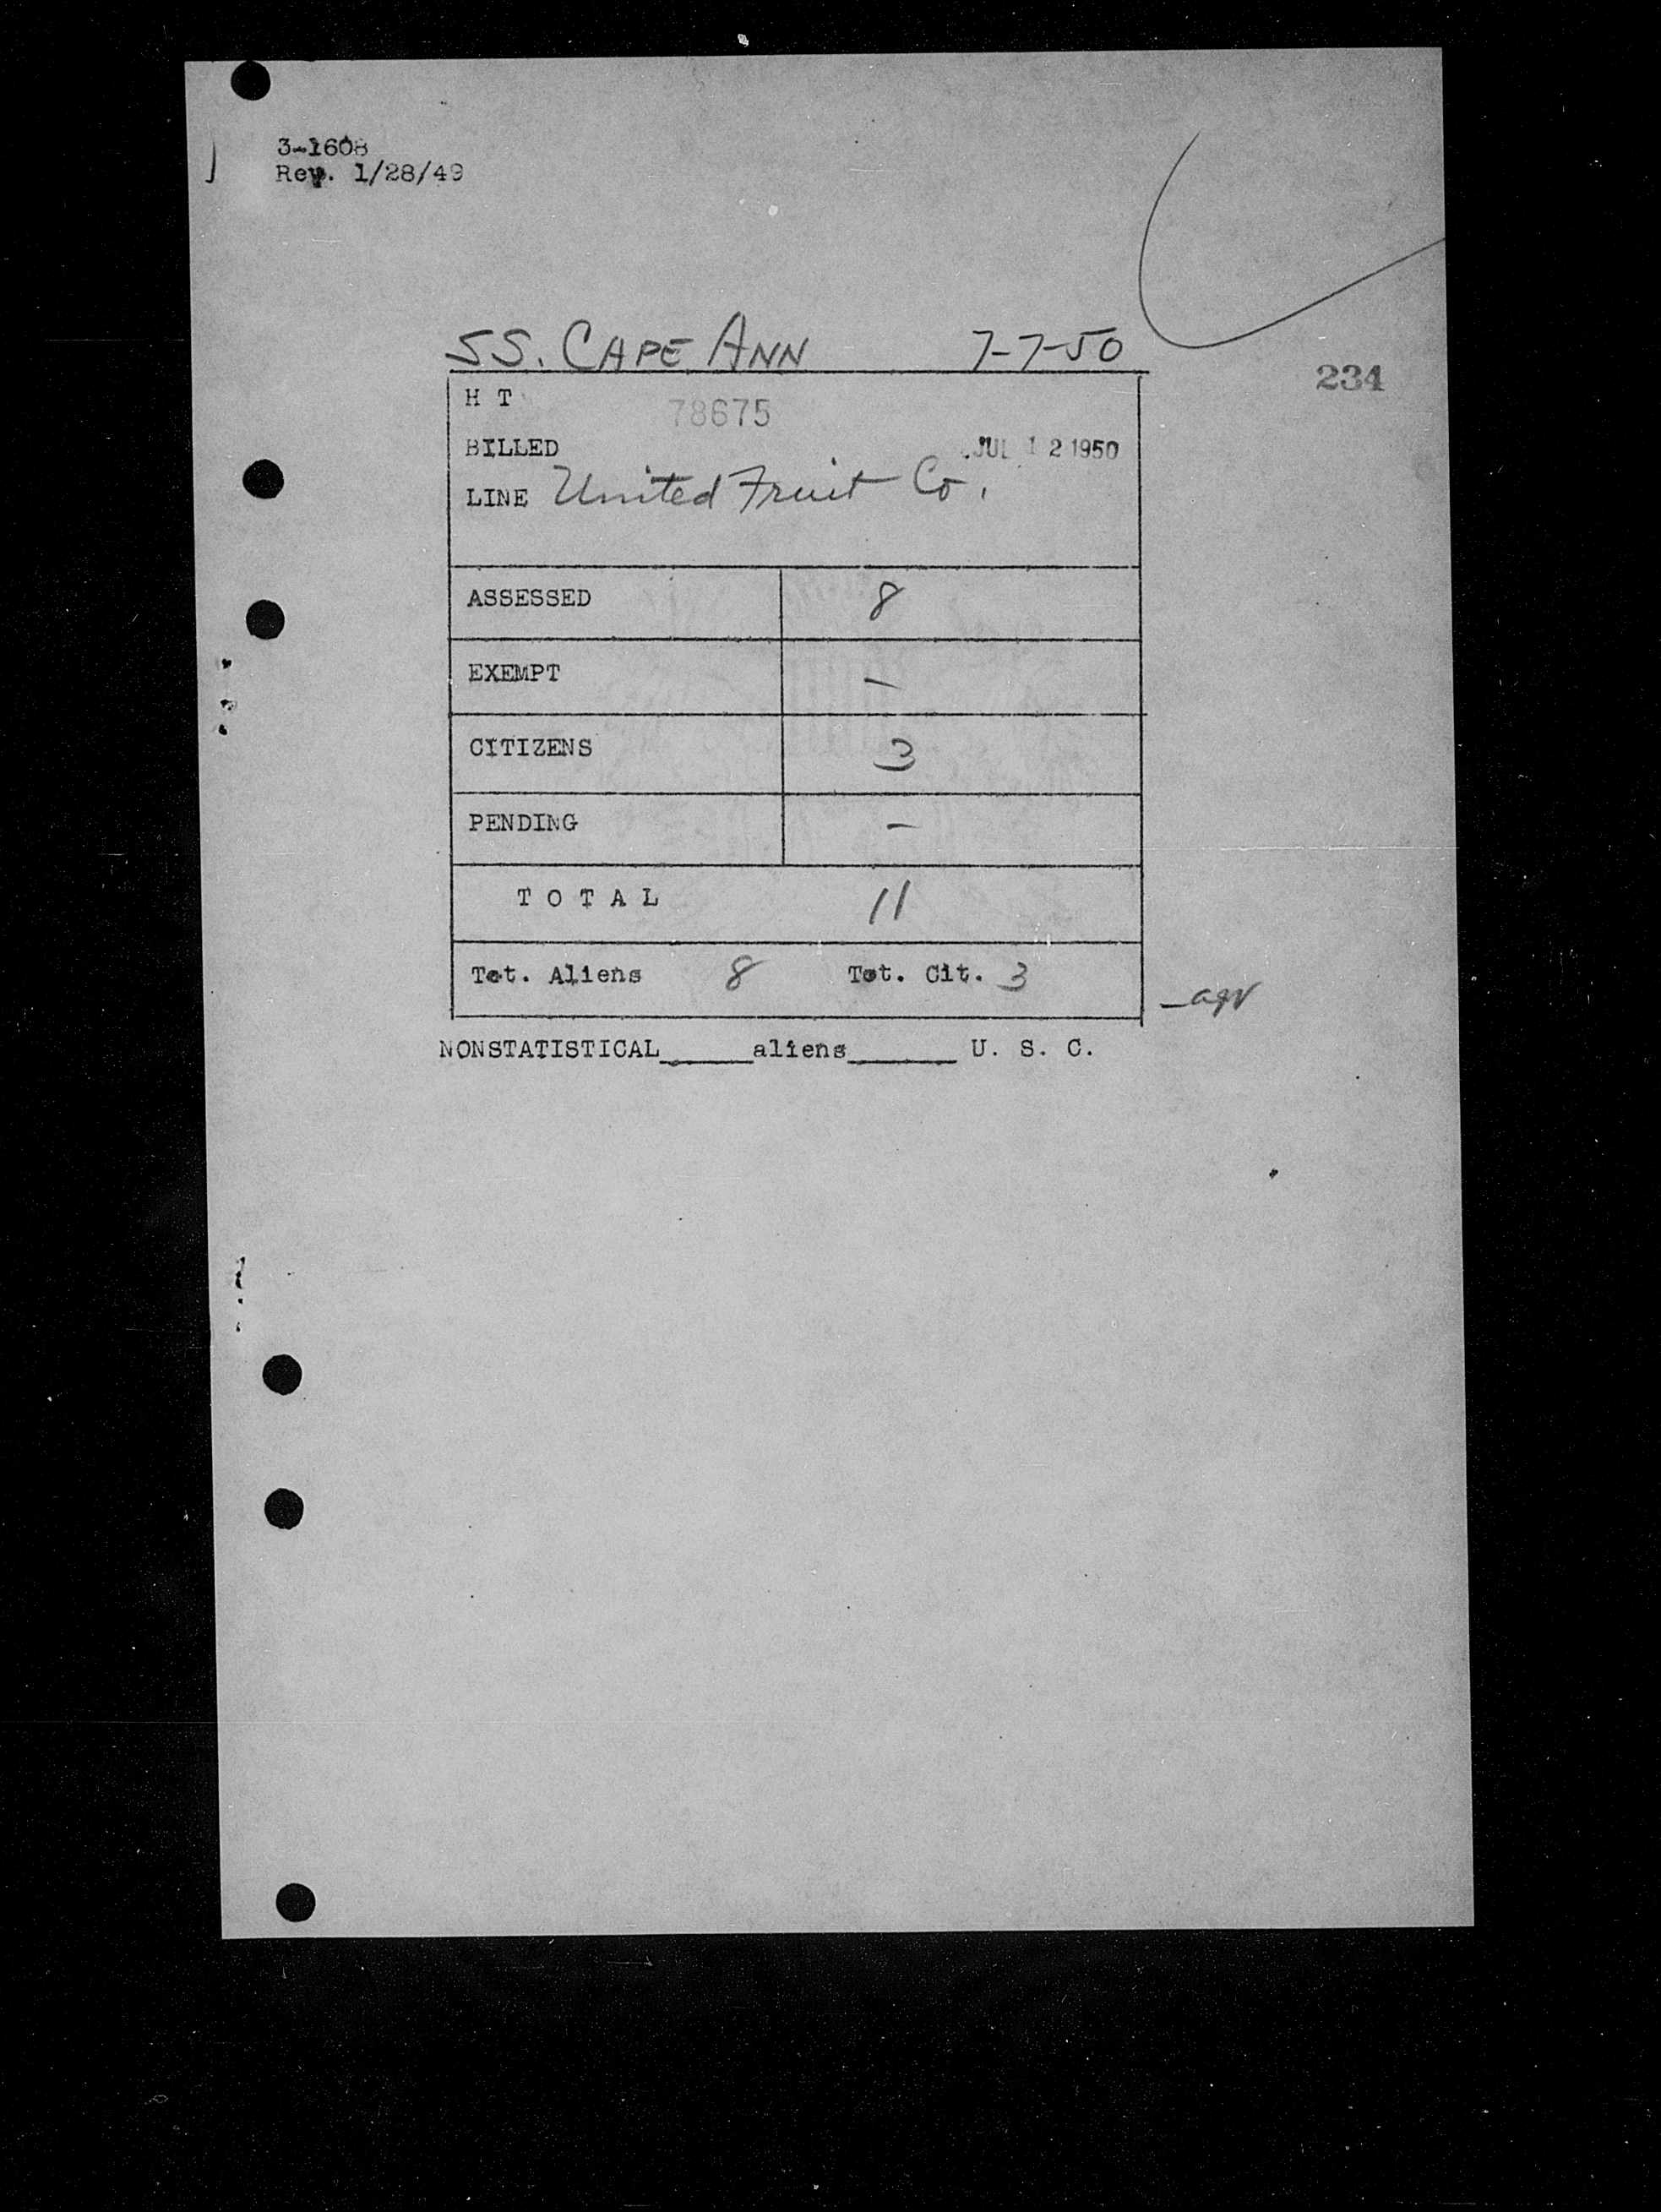 3-1608
Rev. 1/28/49
SS. CAPE ANN 7-7-50
234
H T 78675
BILLED JUL 12 1950
LINE United Fruit Co.
ASSESSED 8
EXEMPT –
CITIZENS 3
PENDING –
T O T A L 11
Tot. Aliens 8 Tot. Cit. 3
NONSTATISTICAL_____aliens______ U. S. C.